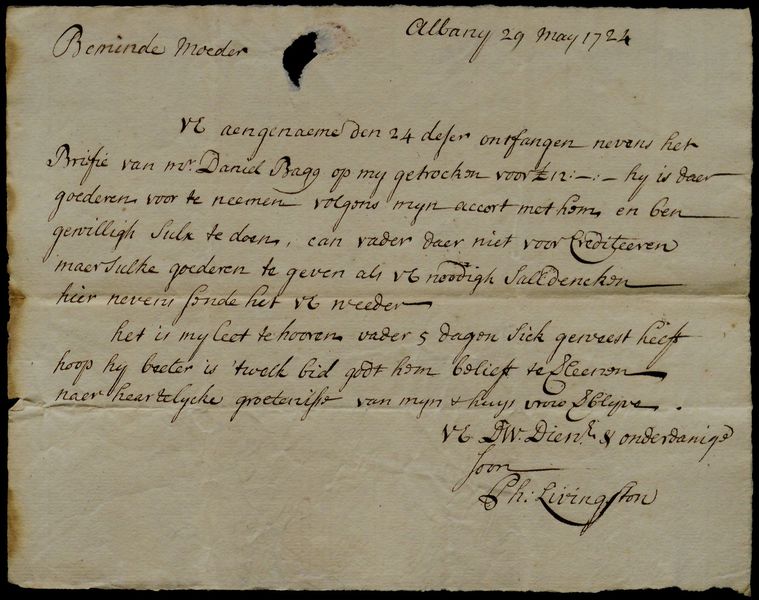 Albany 29 May 1724
Beminde Moeder
VE aengenaeme den 24 deser ontfangen nevens het
Briefie van mr. Daniel Bagg op my getrocken voor £12:-:- hy is daer
goederen voor te neemen volgons myn accort met hem en ben
gewilligh sulx te doen, can vader daer niet voor Crediteeren
maer sulke goederen te geven als VE noodigh sall dencken
hier nevens sende het VE weeder
het is my leet te hooren vader 5 dagen sick geweest heeft
hoop hy beeter is 'twelk bid godt hem belieft te
naer heartelycke groetenisse van myn & huys vrow Blyve.
VE DW. Dienr. & onderdanige
soon
Ph: Livingston